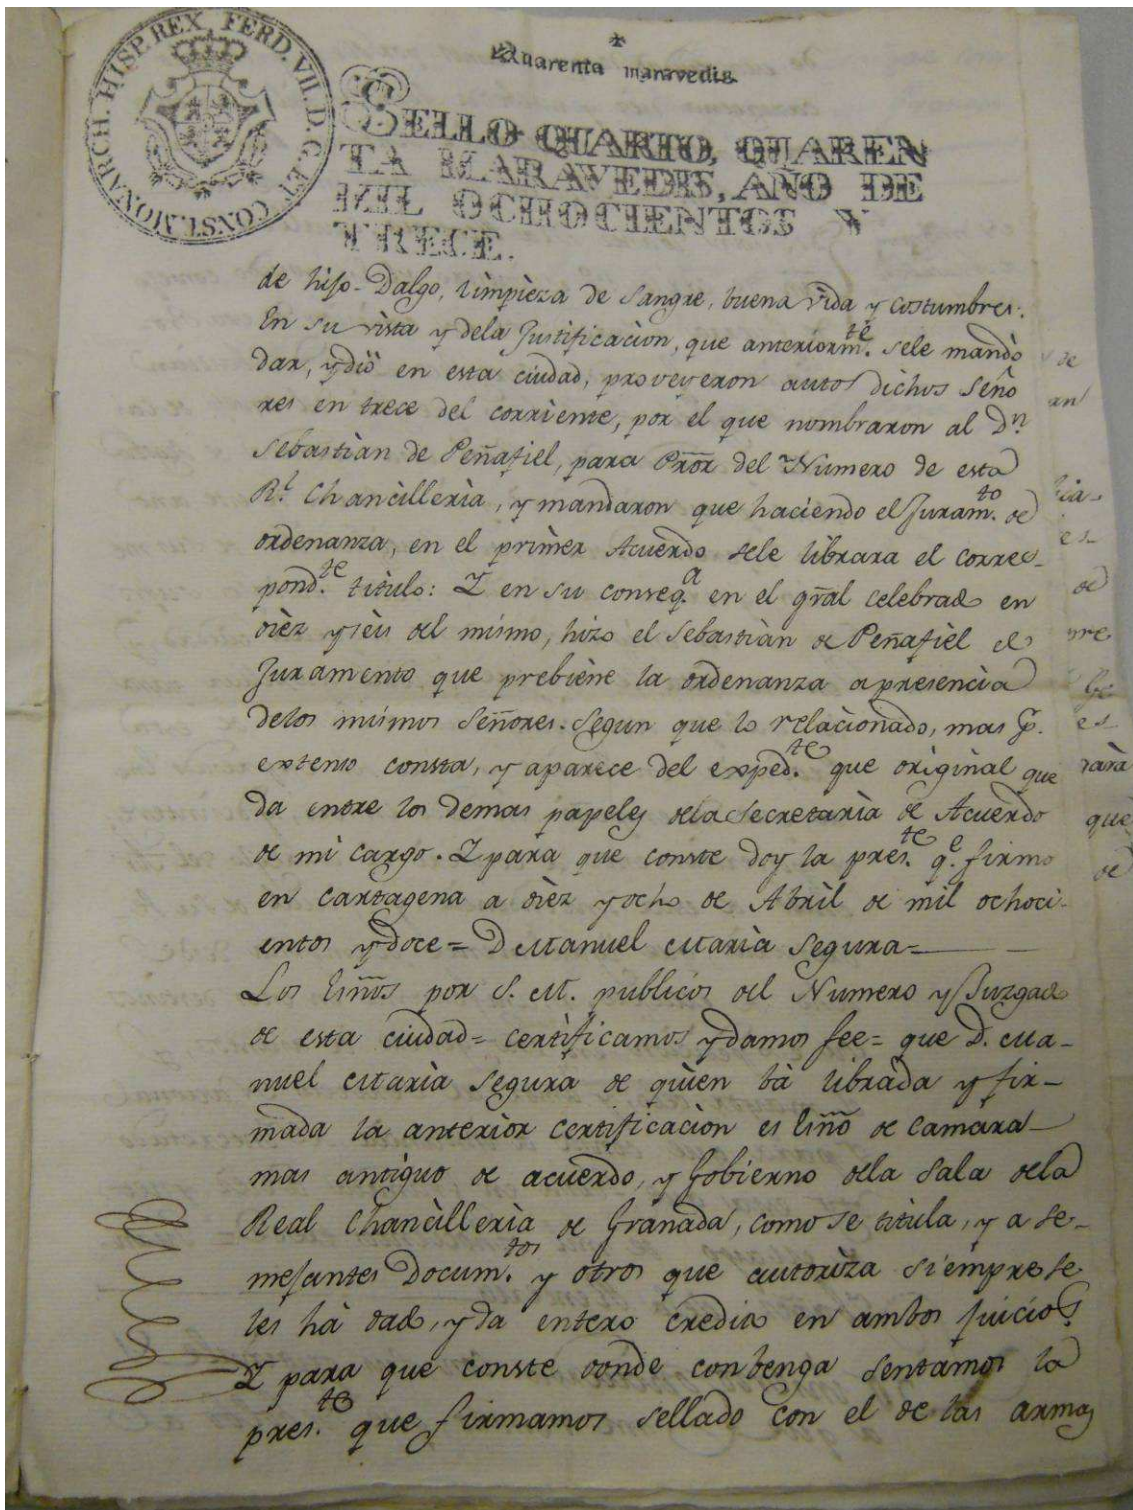 HISP. REX, FERD. VII. D. G. ET CONST. MONARCH.
Quarenta maravedis
SELLO QUARTO, QUAREN
TA MARAVEDIS, AÑO DE
MIL OCHOCIENTOS Y
TRECE.
de hijo-Dalgo, limpieza de sangre, buena vida y costumbres.
En su vista y dela Justificacion, que anteriorm.te sele mandò
dar, y diò en esta ciudad, proveyeron autos dichos Seño
res en trece del corriente, por el que nombraron al Dn
Sebastian de Peñafiel, para Prõr del Numero de esta
Rl. Chancilleria, y mandaron que haciendo el Juram.to de
ordenanza, en el primer Acuerdo sele librara el corres-
pond.te titulo: Y en su conseq.a en el gr̃al celebrado en
dièz y seis del mismo, hizo el Sebastian de Peñafiel el
Juramento que prebiene la ordenanza a presencia
delos mismos Señores. Segun que lo relacionado, mas p.
extenso consta, y aparece del exped.te que original que
da entre los demas papeles dela Secretaria de Acuerdo
de mi cargo. Y para que conste doy la pres.te q.e firmo
en Cartagena a dièz y ocho de Abril de mil ochoci-
entos y doce = D Manuel Maria Segura =
Los Esñ̃os por S. M. publicos del Numero y Juzgado
de esta ciudad = certificamos y damos fee = que D. Ma-
nuel Maria Segura de quien bà librada y fir-
mada la anterior certificacion es Esñ̃o de Camara
mas antiguo de acuerdo, y Gobierno dela Sala dela
Real Chancilleria de Granada, como se titula, y a se-
mejantes Docum.tos y otros que autoriza siempre se
les hà dado, y da entero credito en ambos juicios
Y para que conste donde conbenga sentamos la
pres.te que firmamos sellado con el de las armas